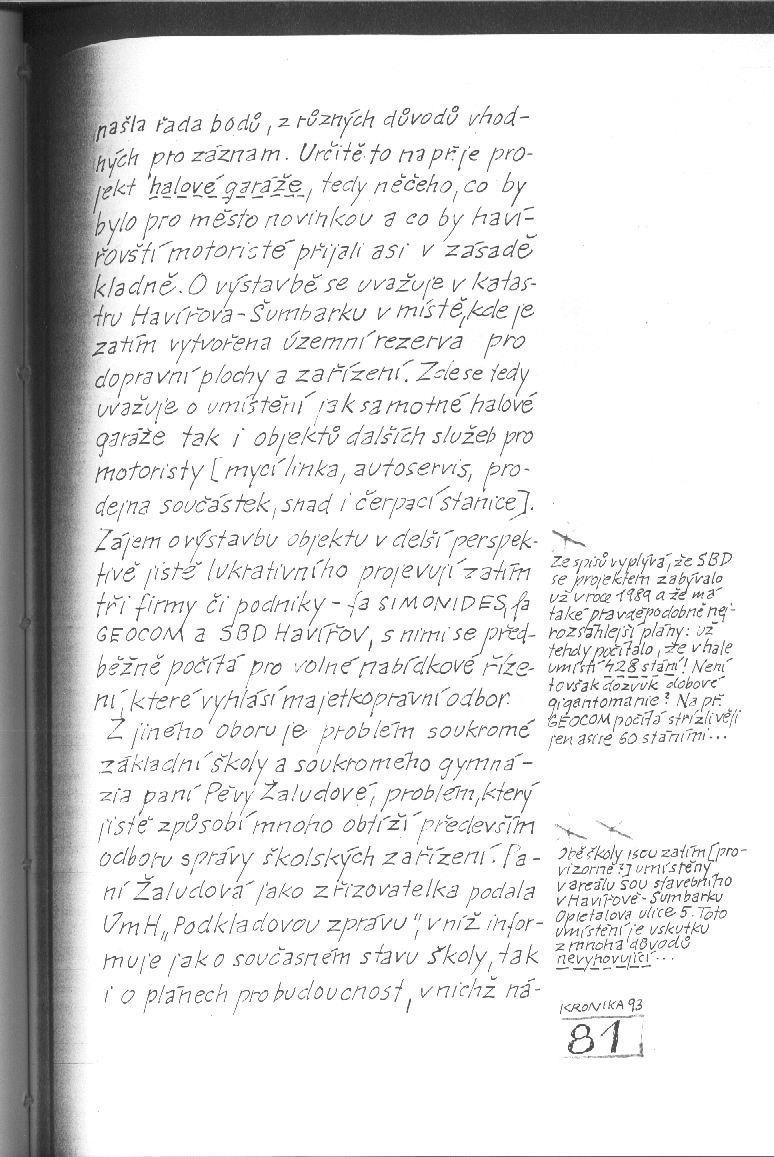 našla řada bodů, z různých důvodů vhod-
ných pro záznam. Určitě to např. je pro-
jekt halové garáže, tedy něčeho, co by
bylo pro město novinkou a co by haví-
řovští motoristé přijali asi v zásadě
kladně. O výstavbě se uvažuje v katas-
tru Havířova-Šumbarku v místě, kde je
zatím vytvořena územní rezerva pro
dopravní plochy a zařízení. Zde se tedy
uvažuje o umístění jak samotné halové
garáže tak i objektů dalších služeb pro
motoristy [mycí linka, autoservis, pro-
dejna součástek, snad i čerpací stanice].
Zájem o výstavbu objektu v delší perspek-
tivě jistě lukrativního projevují zatím
tři firmy či podniky - fa SIMONIDES, fa
GEOCOM a SBD HAVÍŘOV, s nimi se před-
běžně počítá pro volné nabídkové říze-
ní, které vyhlásí majetkoprávní odbor.
Z jiného oboru je problém soukromé
základní školy a soukromého gymná-
zia paní Pěvy Žaludové, problém, který
jistě způsobí mnoho obtíží především
odboru správy školských zařízení. Pa-
ní Žaludová jako zřizovatelka podala
ÚmH „Podkladovou zprávu", v níž infor-
muje jak o současném stavu školy, tak
i o plánech pro budoucnost, v nichž ná-
Ze spisů vyplývá, že SBD
se projektem zabývalo
už v roce 1989 a že má
také pravděpodobně nej-
rozsáhlejší plány: už
tehdy počítalo, že v hale
umístí 428 stání! Není
to však dozvuk dobové
gigantomanie? Např.
GEOCOM počítá střízlivěji
jen asi se 60 stáními...
Obě školy jsou zatím [pro-
vizorně?] umístěny
v areálu SOU stavebního
v Havířově-Šumbarku
Opletalova ulice 5. Toto
umístění je vskutku
z mnoha důvodů
nevyhovující...
KRONIKA 93
81